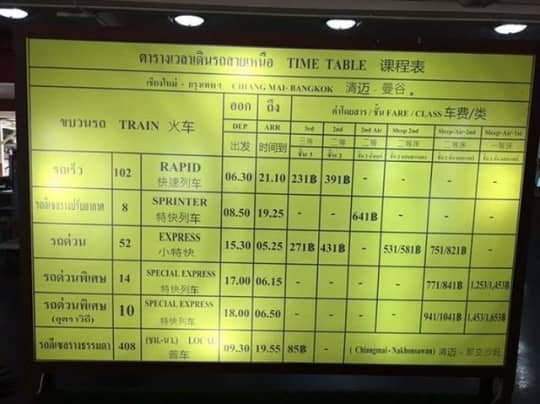 ตารางเวลาเดินรถสายเหนือ TIME TABLE 课程表
เชียงใหม่ - กรุงเทพฯ CHIANG MAI- BANGKOK 清迈 - 曼谷
ขบวนรถ TRAIN 火车 ออก ถึง ค่าโดยสาร / ชั้น FARE / CLASS 车费/类
DEP. ARR 3rd 2nd 2nd Air Sleep -2nd Sleep-Air-2nd Sleep-Air-1st
出发 时间到 三等 二等 二等 二等床 二等床 一等床
ชั้น 3 ชั้น 2
รถเร็ว 102 RAPID 快速列车 06.30 21.10 231฿ 391฿ - - - -
รถดีเซลรางปรับอากาศ 8 SPRINTER 特快列车 08.50 19.25 - - 641฿ - - -
รถด่วน 52 EXPRESS 小特快 15.30 05.25 271฿ 431฿ - 531/581฿ 751/821฿ -
รถด่วนพิเศษ 14 SPECIAL EXPRESS 特快列车 17.00 06.15 - - - - 771/841฿ 1,253/1,453฿
รถด่วนพิเศษ (อุตราวิถี) 10 SPECIAL EXPRESS 特快列车 18.00 06.50 - - - - 941/1041฿ 1,453/1,653฿
รถดีเซลรางธรรมดา 408 (ชม.-นว.) LOCAL 首车 09.30 19.55 85฿ - - ( Chiangmai - Nakhonsawan) 清迈 - 那空沙旺